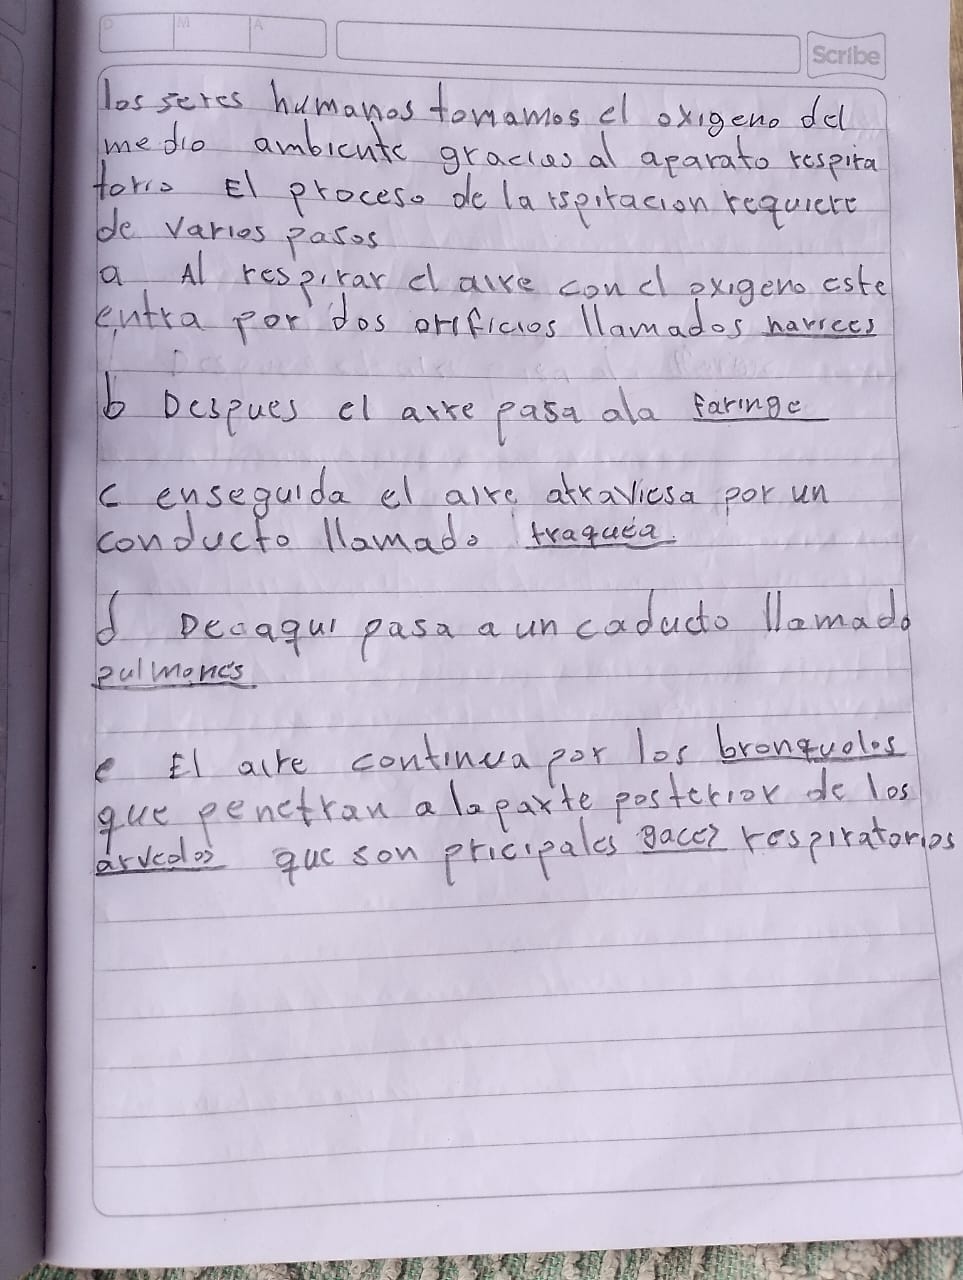 D M A
Scribe
los seres humanos tomamos el oxigeno del
medio ambiente gracias al aparato respira
torio El proceso de la rspiracion requiere
de varios pasos
a Al respirar el aire con el oxigeno este
entra por dos orificios llamados narices
b Despues el aire pasa ala faringe
c enseguida el aire atraviesa por un
conducto llamado traquea.
d Decaqui pasa a un caducto llamado
pulmones
e El aire continua por los bronquolos
que penetran a la parte posterior de los
arveolos que son pricipales gaces respiratorios